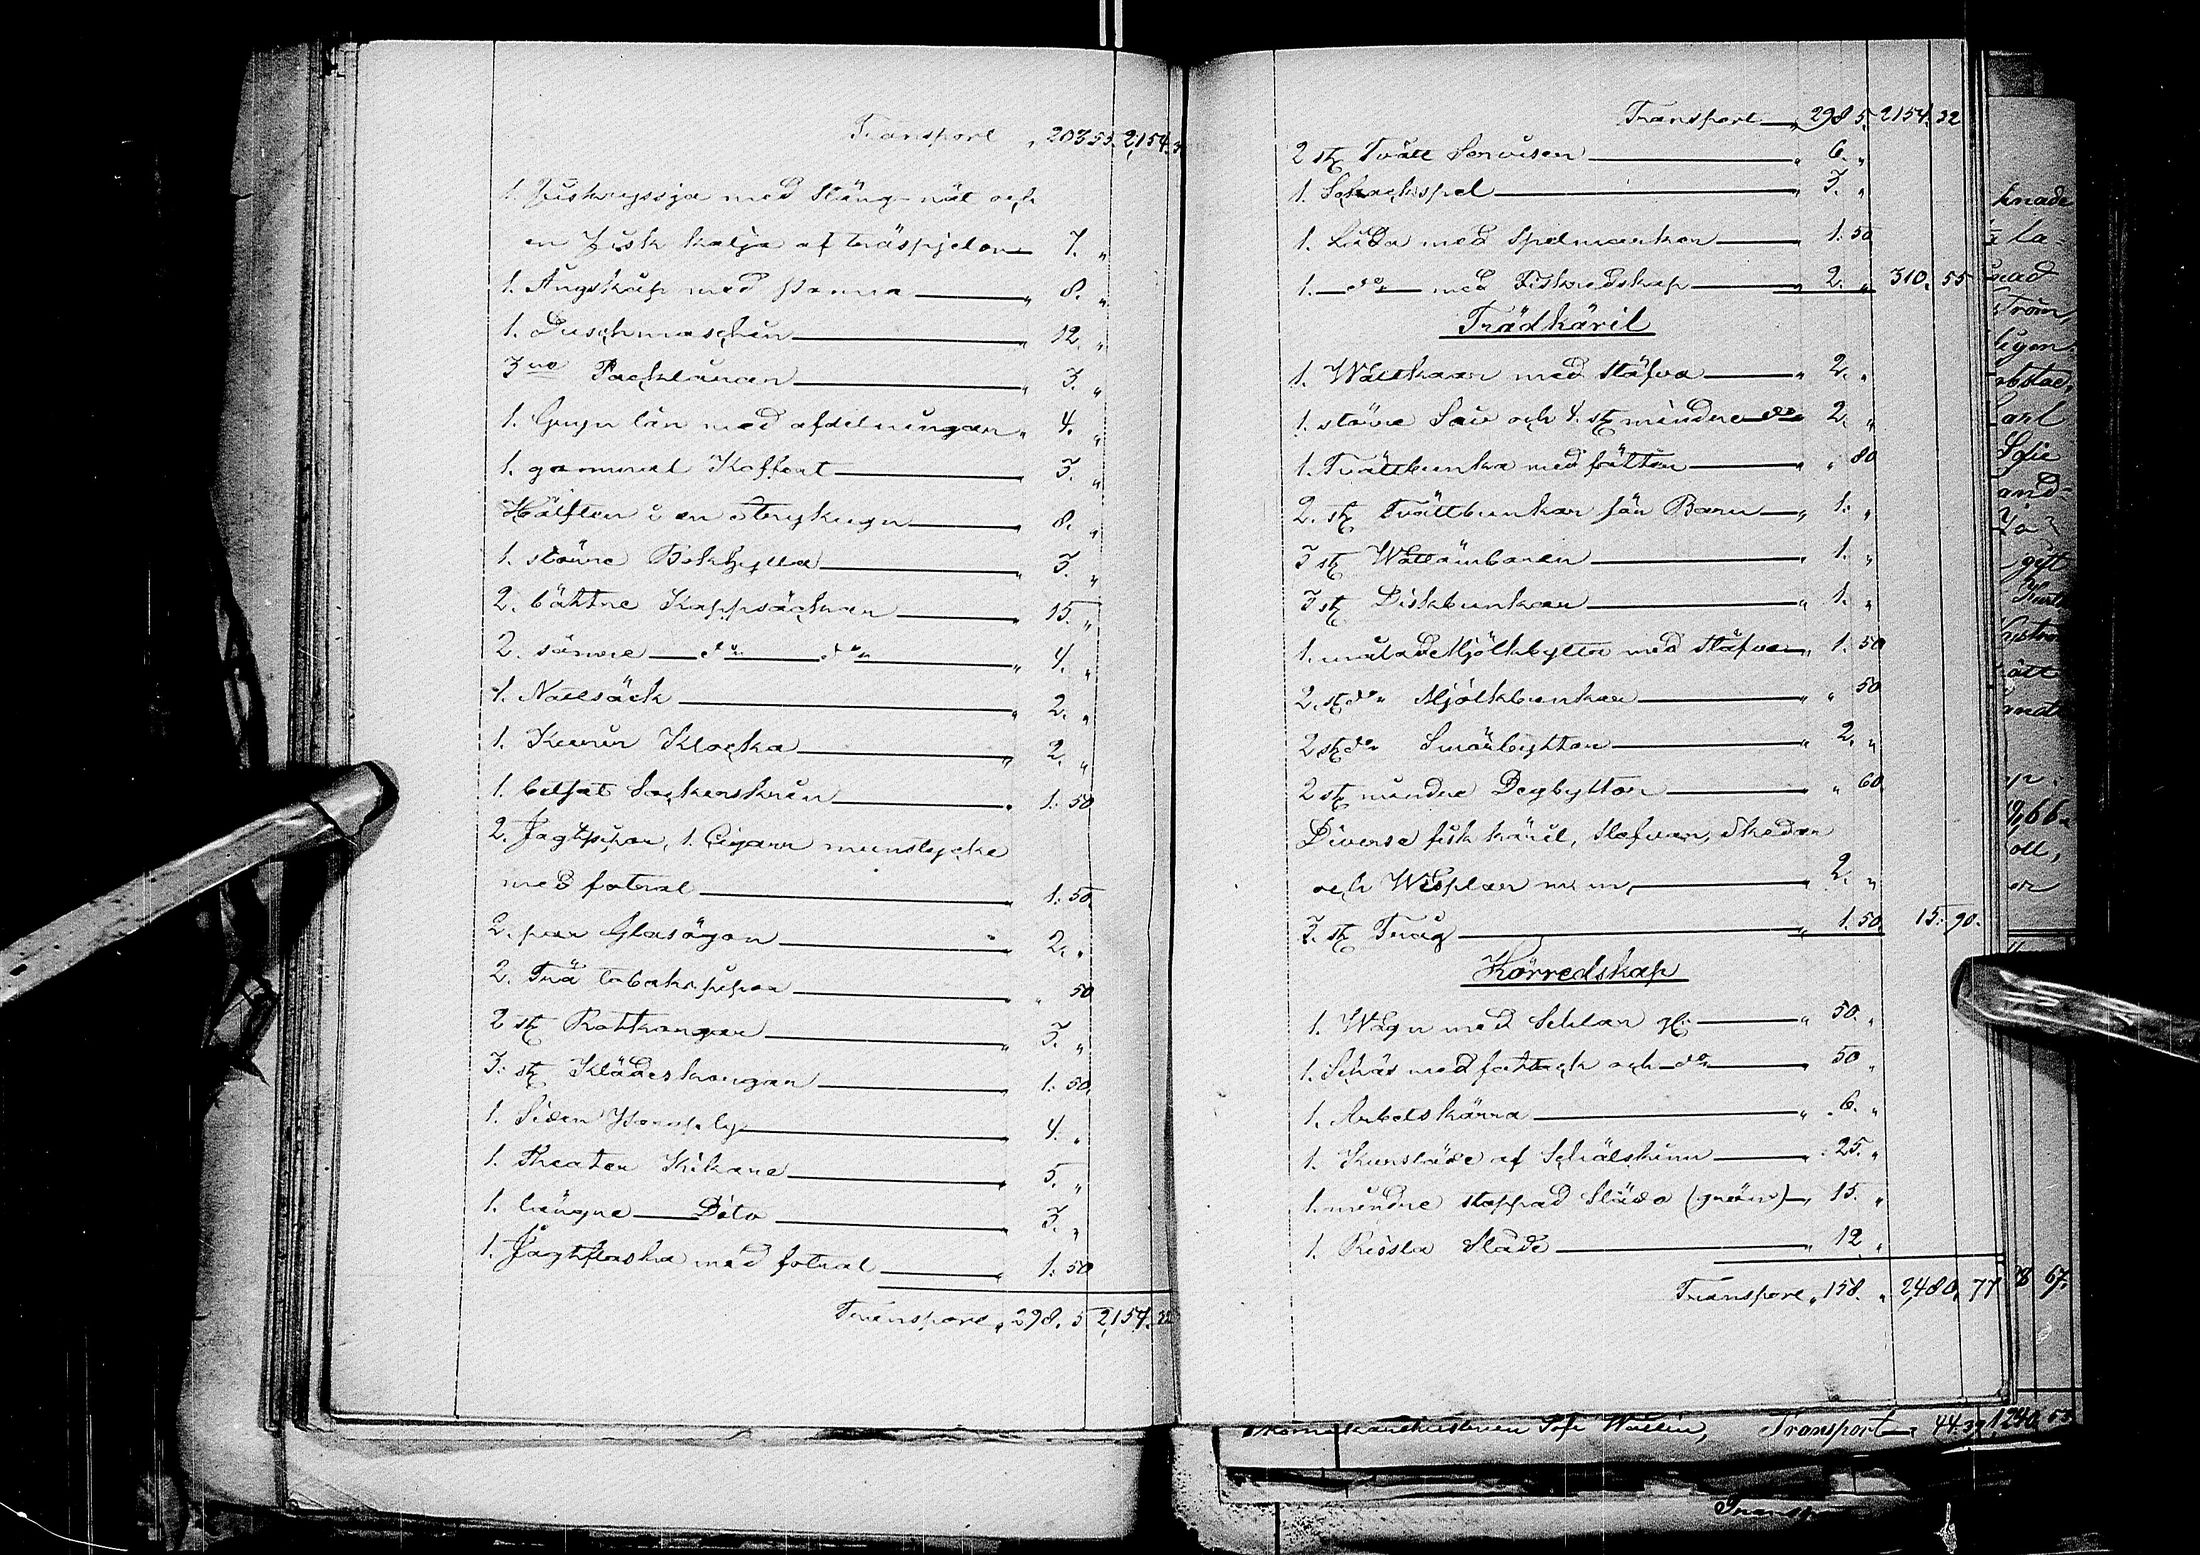 Transport " 203 55. 2,154. 3
1. Fiskryssja med Stäng-nät och
en Fisk kalja af träspjelor 7. "
1. Ångskåp med panna " 8. "
1. Duschmaschin " 12. "
3ne Packlårar " 3. "
1. Gryn lår med afdelningar " 4. "
1. gammal Koffert " 3. "
Hälften i en strykugn " 8. "
1. större Bokhylla " 3. "
2. bättre Kappsäckar " 15. "
2. sämre do do " 4. "
1. Nattsäck " 2. "
1. Kurir Klocka " 2. "
1. betsat Sockerskrin " 1. 50
2. Jagtpipor, 1. Cigarr munstycke
med fotral " 1. 50.
2. par Glasögon " 2. "
2. Trä tobakspipor " " 50
2 st Rottkorgar " 3. "
3. st Klädeskorgar " 1. 50.
1. Siden Paraply " 4. "
1. Theater Kikare " 5. "
1. längre Dito " 3. "
1. Jagtflaska med fotral " 1. 50
Transport " 298. 5 2,154. 32
Transport " 298 5. 2154. 32
2 st Tvätt Serviser " 6. "
1. Schackspel " 3. "
1. Låda med Spelmarker " 1. 50
1. do med Fiskredskap " 2. " 310. 55
Trädkäril
1. Wattkar med Stäfva " 2. "
1. större Så och 4. st mindre do 2. "
1. Tvättbunka med fötter " " 80
2. st Tvättbunkar för Barn " 1. "
3 st Wattämbaren " 1. "
3 st Diskbunkar " 1. "
1. målad Mjölkbytta med Stäfvor " 1. 50
2. st do Mjölkbunkar " " 50
2 st do Smörbyttor " 2. "
2 st mindre Degbyttor " " 60
Diverse fisk käril, Stäfvor, Skedar
och Wisplar m m, " 2. "
3. st Tråg " 1. 50. 15. 90.
Körredskap
1. Wagn med Selar " 50. "
1. Schäs med fotsack och do 50 "
1. Arbetskärra " 6. "
1. Kursläde af Schälskinn " 25. "
1. mindre stoppad Släde (grön) " 15. "
1. Rissla Släde " 12 "
Transport " 158. " 2,480. 77
knade
la-
nad
ström,
ligen
Carl
Sofie
and-
gift
66
8 67.
Sofi Wallin, Transport " 44. 39 1240. 53